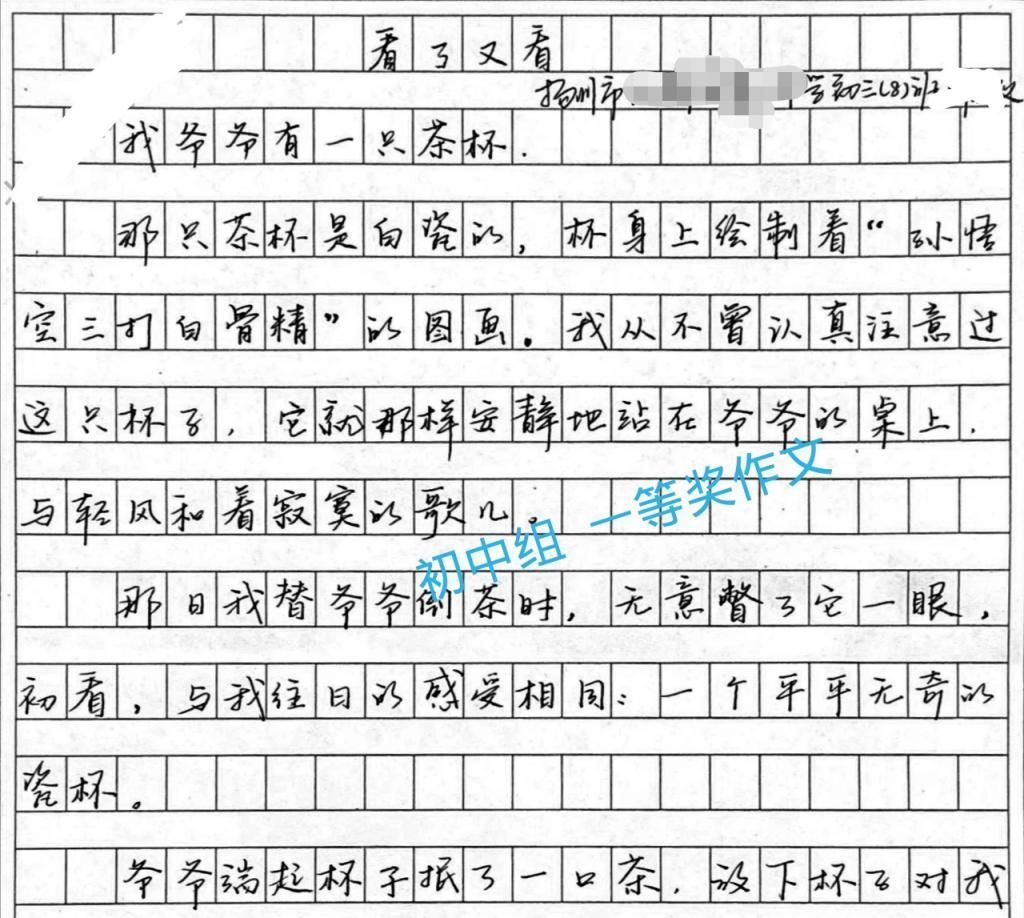 看了又看
扬州市 学初三(8)班
我爷爷有一只茶杯.
那只茶杯是白瓷的,杯身上绘制着“孙悟
空三打白骨精”的图画。我从不曾认真注意过
这只杯子,它就那样安静地站在爷爷的桌上,
与轻风和着寂寞的歌儿。
初中组 一等奖作文
那日我替爷爷倒茶时,无意瞥了它一眼,
初看,与我往日的感受相同:一个平平无奇的
瓷杯。
爷爷端起杯子抿了一口茶,放下杯子对我